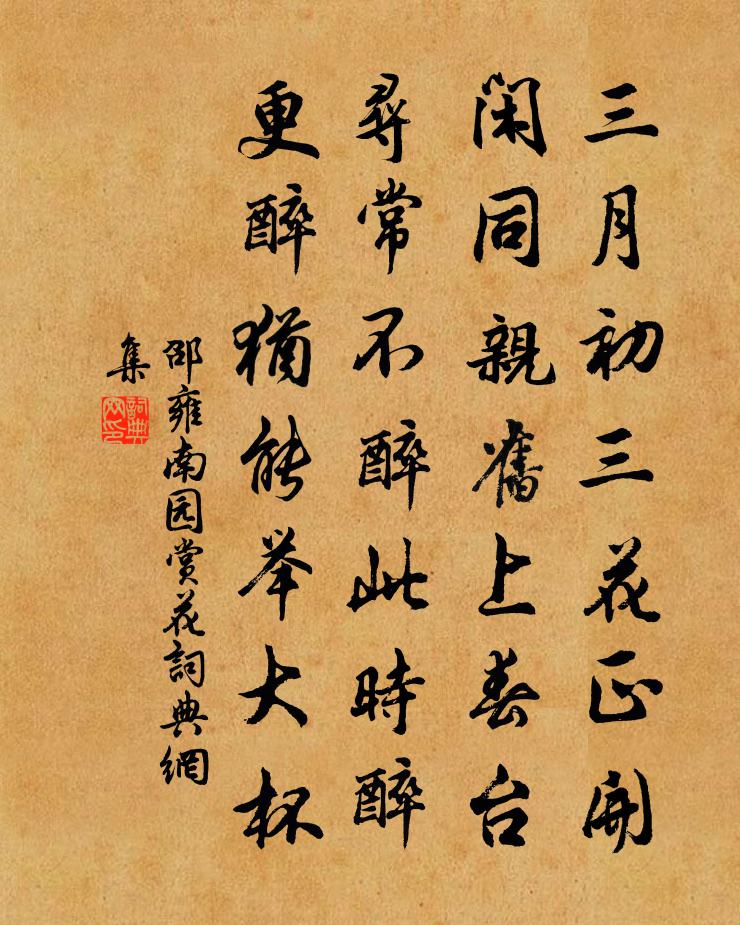 三月初三花正開
閑同親舊上春台
尋常不醉此時醉
更醉猶能举大杯
邵雍南园賞花詞典網
集
詞典
网印